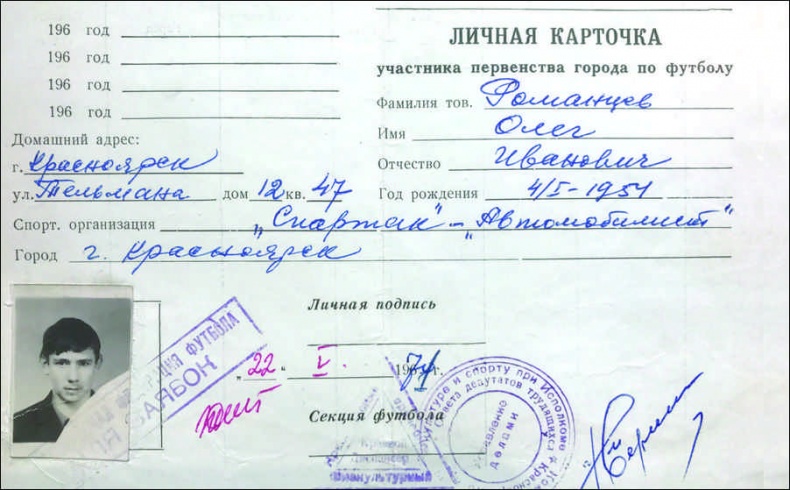 196 год
196 год
196 год
196 год
Домашний адрес:
г. Красноярск
ул. Тельмана дом 12 кв. 47
ЛИЧНАЯ КАРТОЧКА
участника первенства города по футболу
Фамилия тов. Романцев
Имя Олег
Отчество Иванович
Год рождения 4/I-1954
Спорт. организация „Спартак"-„Автомобилист"
Город г. Красноярск
Личная подпись
„22" V. 1971 г.
Секция футбола
ФУТБОЛА
ЗАЯВОК
культуре и спорту при Исполкоме
Совета депутатов трудящихся